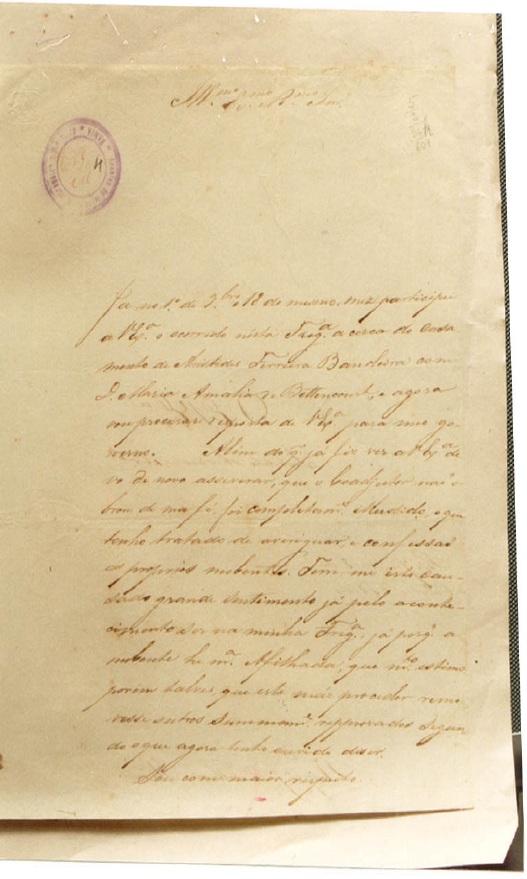 Ill.mo e Rev.mo Snr.
Ja no 1º de 9.bro e 18 do mesmo mez participei
a V. Ex.ª o ocorrido nesta Freg.ª a cerca do Casa
mento de Aristides Ferreira Bandeira com
D. Maria Amalia de Bettencourt, e agora
vou procurar resposta de V. Ex.ª para meu go
verno. Alem do q. já fiz ver a V. Ex.ª de
vo de novo asseverar, que o Coadjutor não o
brou de má fé, foi completam.e illudido, o que
tenho tratado de averiguar, e confessaõ
os proprios nubentes. Tem me isto cau-
sado grande sentimento já pelo aconte-
cimento ser na minha Freg.ª, já porq. a
nubente he m.ª Afilhada, que m.to estimo
porem talvez, que este máo proceder remo
vesse outros summam.e reprovados segun
do o que agora tenho ouvido dizer.
Sou com o maior respeito